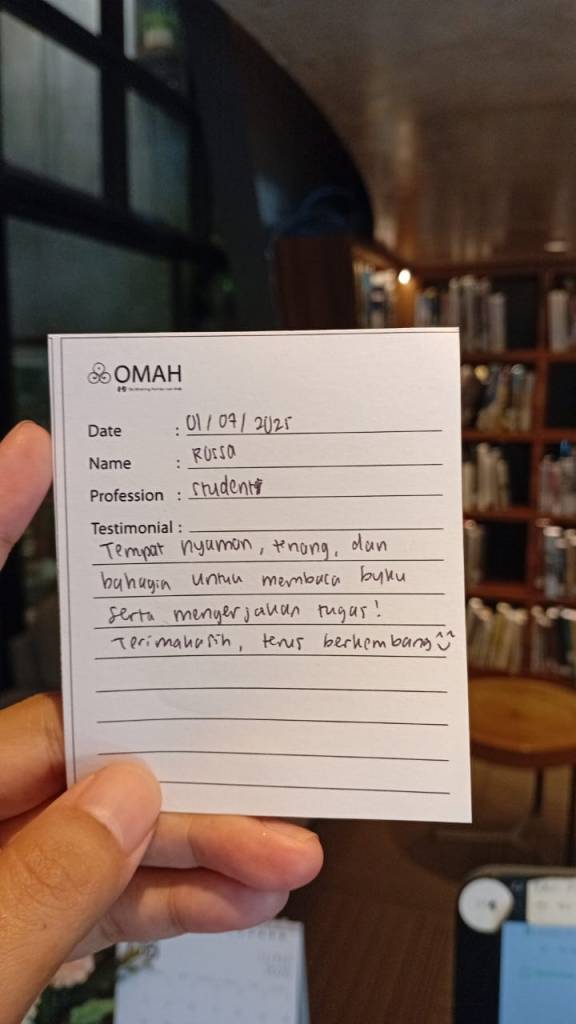 OMAH
Date : 01 / 07 / 2025
Name : Rossa
Profession : Student
Testimonial :
Tempat nyaman, tenang, dan
bahagia untuk membaca buku
serta mengerjakan tugas!
Terimakasih, terus berkembang